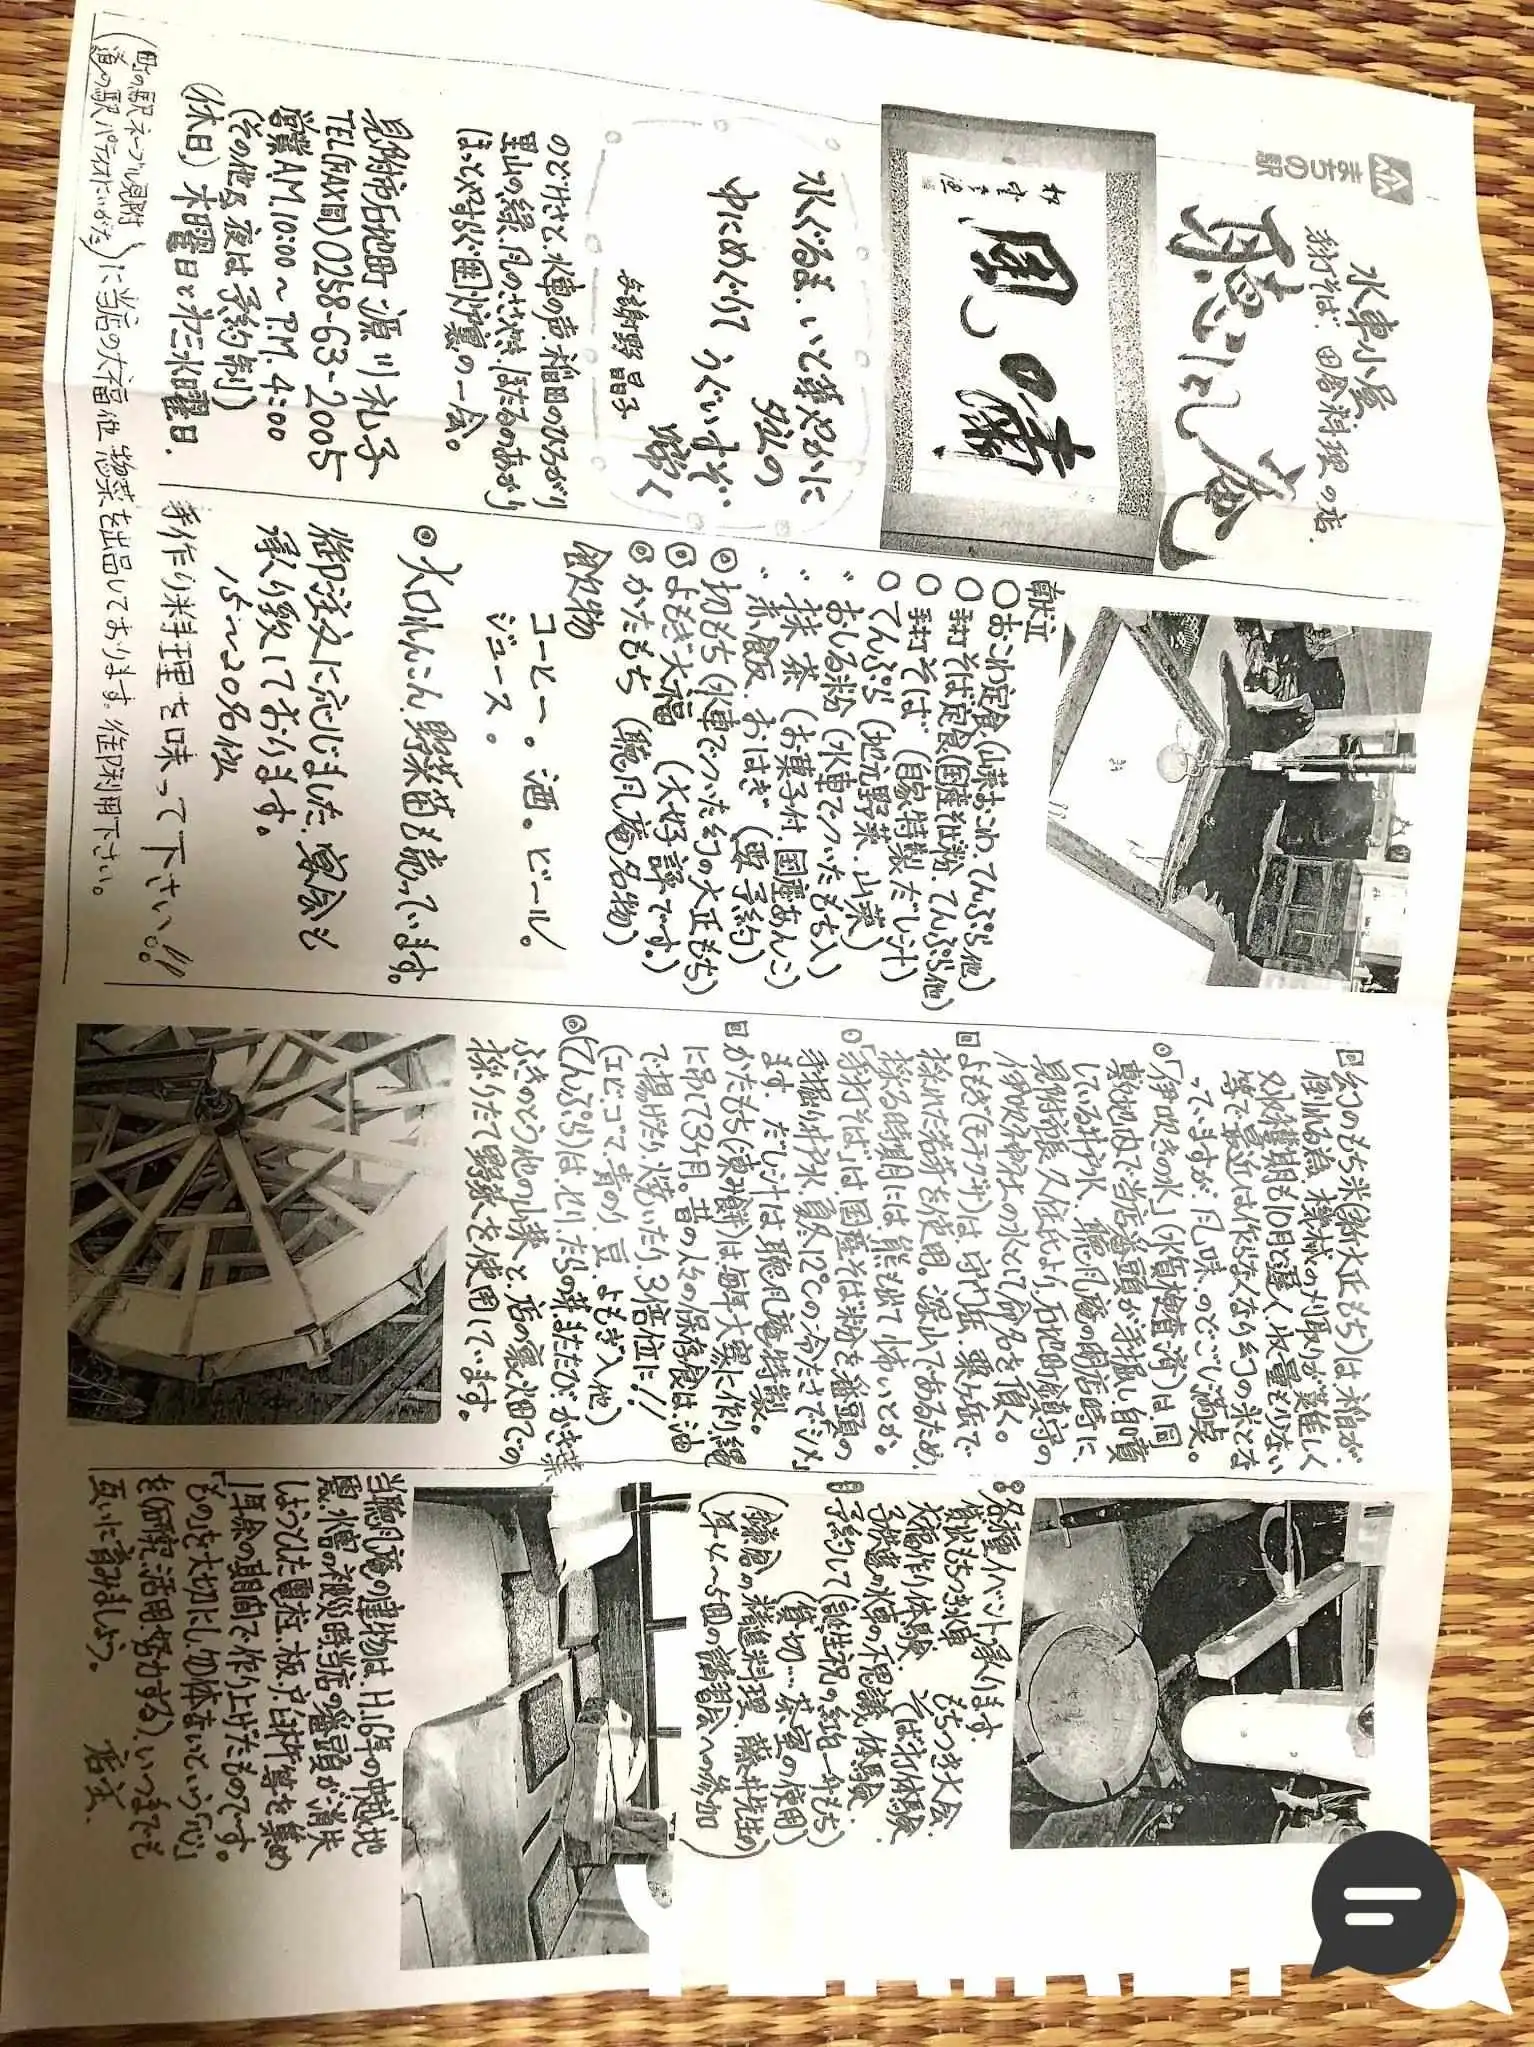 まちの駅
水車小屋
手打そば、田舎料理の店
聴風庵
風の嘯
水ぐるま、いと華やかに
ゆにめぐりて うぐいすぞ
啼く
与謝野 晶子
のどけさと、水車の声、稲田のひろがり
里山の緑、風のささやき、ほたるのあかり
ほっとやすらぐ囲炉裏の一会。
見附市石地町 源川礼子
TEL(FAX同)0258-63-2005
営業A.M.10:00〜P.M.4:00
(その他、夜は予約制)
(休日) 木曜日と第三水曜日.
(町の駅ネーブル見附
道の駅パティオにいがた)に当店の大福他 惣菜を出品しております。御利用下さい。
献立
○おこわ定食(山菜おこわ、てんぷら他)
○手打そば定食(国産そば粉、てんぷら他)
○手打そば (自家特製だし汁)
○てんぷら (地元野菜、山菜)
〃おしる粉 (水車でついたもち入)
〃抹茶 (お菓子付、国産あんこ)
〃赤飯、おはぎ (要予約)
◎切もち(水車でついた幻の大正もち)
◎よもぎ大福 (大好評です。)
◎かたもち (聴風庵名物)
飲物
コーヒー。酒。ビール。
ジュース。
◎大口れんこん、野菜苗も売っています。
御注文に応じました、宴会も
承り致しております。
15〜20名位
手作り料理を味って下さい。!!
回幻のもち米(新大正もち)は稲が
倒れる為、機械の刈取りが難しく
又収穫期も10月と遅く、収量も少ない
等で最近は作らなくなり幻の米とな
っていますが、風味、のどごし満点。
◎「伊吹きの水」(水質検査済)は、同
敷地内で当店番頭が手掘し、自噴
している井戸水、聴風庵の開店時に
見附市長 久住氏より、石地町鎮守の
伊吹神社の水として命名を頂く。
回よもぎ(モチグサ)は、守門岳、粟ヶ岳で
採れた若芽を使用。深山であるため、
採る時期には、熊も出て怖いとか。
◎「手打そば」は、国産そば粉を番頭の
手掘り井戸水、夏冬12°Cの冷たさでシメ
ます。だし汁は聴風庵特製。
回かたもち(凍み餅)は、毎年大寒に作り縄
に吊して3ヶ月。昔の人々の保存食は、油
で揚げたり、焼いたり、3倍位に!!
(エビ、ゴマ、青のり、豆、よもぎ入他)
◎(てんぷら)は、せり、たらの芽、またたび、かき菜
ふきのとう他の山菜と、店の裏畑での
採りたて野菜を使用しています。
◎各種イベント承ります
賃水もちつき水車 もちつき大会、
大福作り体験、そば打体験、
子供達の水車の不思議体験、
予約して(誕生祝の紅白一升もち)
(貸切…茶室の使用)
(鎌倉の精進料理、藤井先生の
年4〜5回の講習会への参加)
当聴風庵の建物は、H.16年の中越地
震、水害の被災時、当店の番頭が消失
しようとした電柱、板戸、臼、杵等を集め
1年余の期間で作り上げたものです。
「ものを大切にし、勿体ないという「心」
を(研究、活用、努力する)、いつまでも
互いに育みましょう。
店主.